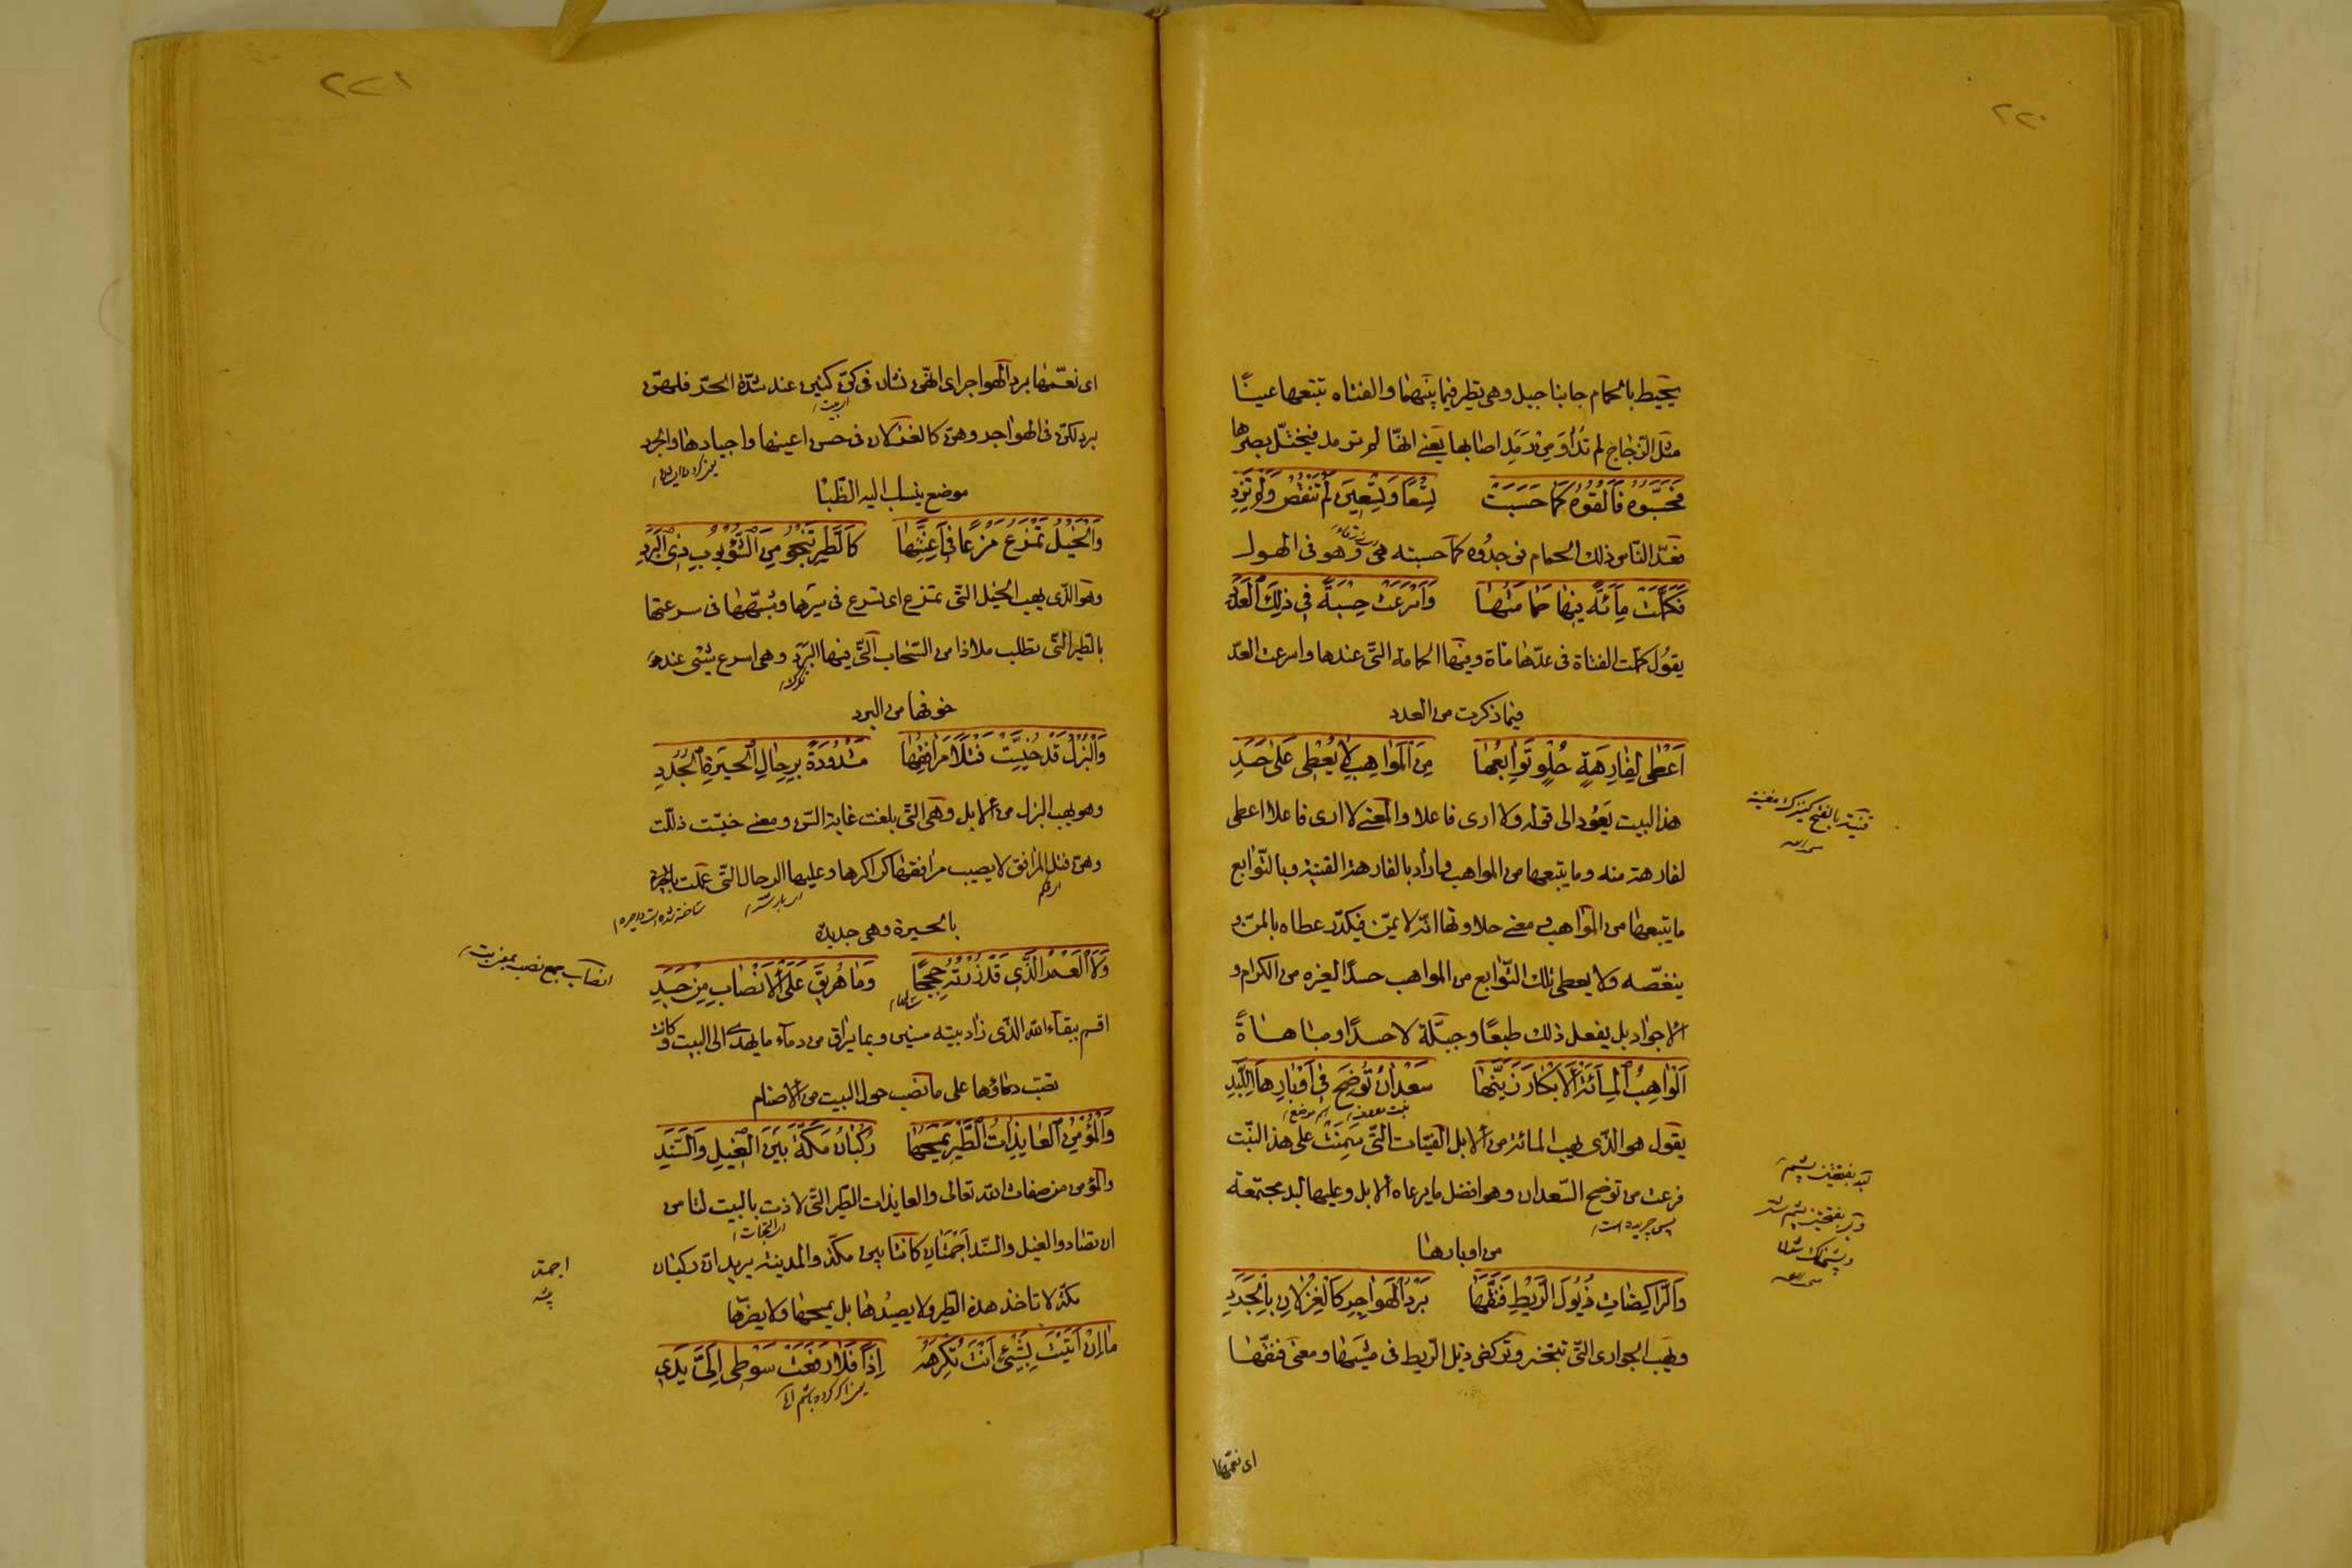 ٢٢٠
يحيط بالحمام جانبا جبل وهى يطير فيما بينهما والفتاه تتبعها عينًا
مثل الزجاج لم تداو من رمد اصابها يعنى انها لم ترمد فيختل بصرها
فَحَسَّبُوهُ فَاَلْفَوْهُ كَمَا حَسَبَتْ تِسْعًا وَتِسْعِينَ لَمْ تَنْقُصْ وَلَمْ تَزِدِ
فعدّ الناس ذلك الحمام فوجدوه كما حسبته هى وهو فى الهول
فَكَمَّلَتْ مِائَةً فِيهَا حَمَامَتُهَا وَاَسْرَعَتْ حِسْبَةً فِى ذٰلِكَ الْعَدَدِ
يقول كملت الفتاة فى عدّها مائة وفيها الحمامة التى عندها واسرعت العدّ
فيما ذكرت من العدد
اَعْطٰى لِفَارِهَةٍ حُلْوٍ تَوَابِعُهَا مِنَ الْمَوَاهِبِ لَا يُعْطٰى عَلٰى حَسَدِ
هذا البيت يعود الى قوله ولا ارى فاعلا والمعنى لا ارى فاعلا اعطى
لفارهة منه وما يتبعها من المواهب واراد بالفارهة القينة وبالتوابع
ما يتبعها من المواهب ومعنى حلاوتها انه لا يمنّ فيكدّر عطاه بالمنّ و
ينغصه ولا يعطى تلك التوابع من المواهب حسدًا لغيره من الكرام و
الاجواد بل يفعل ذلك طبعًا وجبلّة لا حسدًا ومباهاةً
اَلْوَاهِبُ الْمِائَةَ الْاَبْكَارَ زَيَّنَهَا سَعْدَانُ تُوضِحَ فِى اَوْبَارِهَا اللِّبَدِ
يقول هو الذى يهب المائة من الابل الفتيات التى سمنت على هذا النبت
فرعت من توضح السعدان وهو افضل ما يرعاه الابل وعليها لبد مجتمعة
من اوبارها
وَالرَّاكِضَاتِ ذُيُولَ الرَّيْطِ فَنَّقَهَا بَرْدُ الْهَوَاجِرِ كَالْغِزْلَانِ بِالْجَرَدِ
ويهب الجوارى التى تبختر وتركض ذيل الريط فى مشيتها ومعنى فنقها
اى نعمها
قينة بالفتح كنيزك مغنيه
لبد بفتحتين پشم
وبر بفتحتين پشم شتر
٢٢١
اى نعّمها برد الهواجر اى انهن نشان فى كنّ كنين عند شدّة الحرّ فلهنّ
برد لكن فى الهواجر وهنّ كالغزلان فى حسن اعينها واجيادها والجرد
موضع ينسب اليه الظبا
وَالْخَيْلَ تَمْزَعُ مَزْعًا فِى اَعِنَّتِهَا كَالطَّيْرِ تَنْجُو مِنَ الشُّؤْبُوبِ ذِى الْبَرَدِ
وهو الذى يهب الخيل التى تمزع اى تسرع فى سيرها وشبّهها فى سرعتها
بالطير التى تطلب ملاذا من السحاب التى فيها البرد وهى اسرع شىء عند
خوفها من البرد
وَالْبُزْلَ قَدْ خُيِّسَتْ فُتْلًا مَرَافِقُهَا مَشْدُودَةً بِرِحَالِ الْحِيرَةِ الْجُدُدِ
وهو يهب البزل من الابل وهى التى بلغت غاية السن ومعنى خيّست ذلّلت
وهى فتل المرافق لا يصيب مرافقها كراكرها وعليها الرحال التى عملت
بالحيرة وهى جديدة
وَلَا لَعَمْرُ الَّذِى قَدْ زُرْتُهُ حِجَجًا وَمَا هُرِيقَ عَلَى الْاَنْصَابِ مِنْ جَسَدِ
اقسم ببقاء الله الذى زار بيته سنين وبما يراق من دماء ما يهدى الى البيت وكانت
تصبّ دماؤها على ما نصب حول البيت من الاصنام
وَالْمُؤْمِنِ الْعَائِذَاتِ الطَّيْرِ يَمْسَحُهَا رُكْبَانُ مَكَّةَ بَيْنَ الْغِيلِ وَالسَّنَدِ
والمؤمن من صفات الله تعالى والعايذات الطير التى لاذت بالبيت لتامن
ان تصاد والغيل والسند اجمتان كانتا بين مكة والمدينة يريد ان ركبان
مكة لا تاخذ هذه الطير ولا يصيدها بل يمسحها ولا يضرّها
مَا اِنْ اَتَيْتُ بِشَيْءٍ اَنْتَ تَكْرَهُهُ اِذًا فَلَا رَفَعَتْ سَوْطِى اِلَىَّ يَدِى
انصاب جمع نصب
اجمة
بيشه